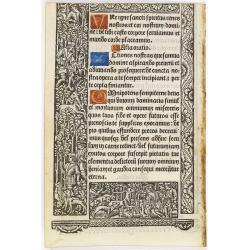 Ure igne sancti spiritus renes
nostros et cor nostrum domi
ne: ut tibi casto corpore seruiamus et
mundo corde placeamus.
Alia oratio.
Actiones nostras quesumus
domine aspirando preueni et
adiuuando prosequere: ut cuncta no
stra operatio a te semper incipiat: et per
te cepta finiatur.
Omnipotens sempiterne deus
qui viuorum dominaris simul
et mortuorum omniumque misereris
quos tuos fide et opere futuros esse
prenoscis te supplices exoramus: ut
pro quibus effundere preces decreui
mus quosque vel presens seculum adhuc
in carne retinet vel futurum iam
exutos corpore suscepit pietatis tue
clementia delictorum suorum omnium
veniam et gaudia consequi mereantur
eterna.